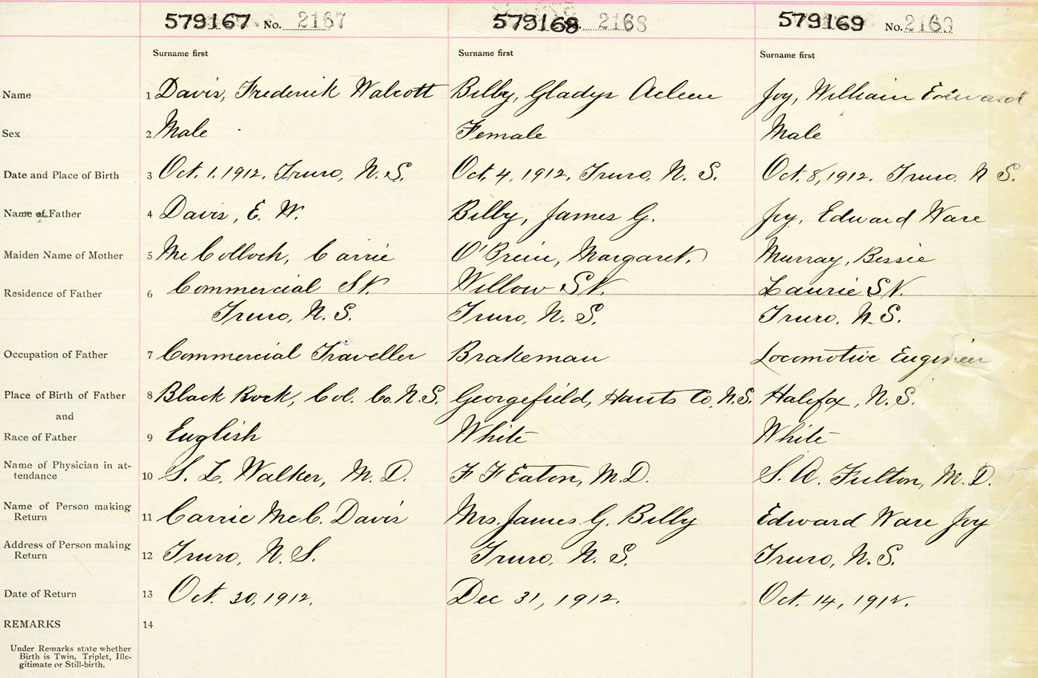 579167 No. 2167 579168 2168 579169 No. 2169
Surname first Surname first Surname first
Name 1 Davis, Frederick Walcott Billy, Gladys Aeleen Joy, William Edward
Sex 2 Male Female Male
Date and Place of Birth 3 Oct. 1. 1912. Truro, N. S. Oct. 4. 1912. Truro, N. S. Oct. 8, 1912. Truro N S.
Name of Father 4 Davis, E. W. Billy, James G. Joy, Edward Ware
Maiden Name of Mother 5 McColloch, Carrie O'Brien, Margaret. Murray, Bessie
Residence of Father 6 Commercial St. Willow St. Laurie St.
Truro, N. S. Truro, N. S. Truro, N. S.
Occupation of Father 7 Commercial Traveller Brakeman Locomotive Engineer
Place of Birth of Father 8 Black Rock, Col. Co. N. S. Georgefield, Hants Co, N.S. Halifax, N. S.
and
Race of Father 9 English White White
Name of Physician in at-
tendance 10 S. L. Walker, M. D. F F Eaton, M.D. S. A. Fulton, M. D.
Name of Person making
Return 11 Carrie McC. Davis Mrs. James G. Billy Edward Ware Joy
Address of Person making
Return 12 Truro, N. S. Truro, N. S. Truro, N. S.
Date of Return 13 Oct. 30, 1912. Dec 31, 1912. Oct. 14, 1912.
REMARKS 14
Under Remarks state whether
Birth is Twin, Triplet, Ille-
gitimate or Still-birth.